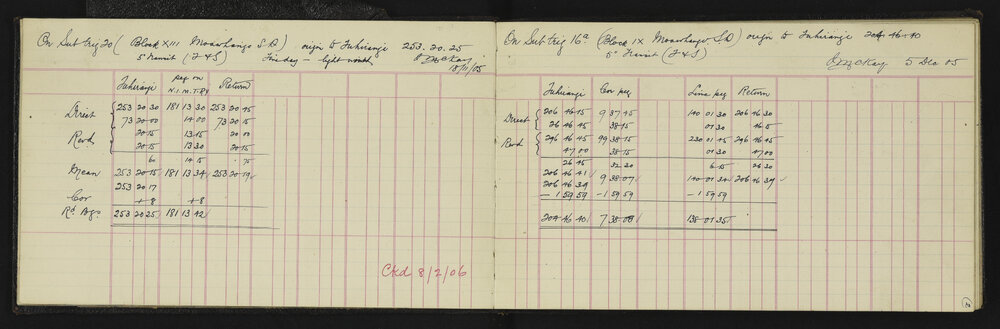 On Sub trig 20 ( Block XIII Moawhango S.D ) origin to Tuhirangi 253.20.25
5" Transit (T & S) Fine day — light north
18/11/05
Tuhirangi peg on N.I.M.T.Ry Return
Direct 253 20 30 181 13 30 253 20 15
73 20 00 14 00 73 20 15
Revd 20 15 13 15 20 10
20 15 13 30 20 15
60 14 15 75
Mean 253 20 15 181 13 34 253 20 19
253 20 17
Cor +8 +8
Rd Bgs 253 20 25 181 13 42
Ckd 8/2/06
On Sub trig 16a (Block IX Moawhango S.D) origin to Tuhirangi 204 46 40
5" Transit (T & S) 5 Dec 05
Tuhirangi Cor peg Line peg Return
Direct 206 46 15 9 37 45 140 01 30 206 46 30
26 46 45 38 15 01 30 46 15
Revd 206 46 45 99 38 15 230 01 45 296 46 45
47 00 38 15 01 30 47 00
26 45 32 30 6 15 26 30
206 46 41 9 38 07 140 01 34 206 46 39
206 46 39
— 1 59 59 — 1 59 59 — 1 59 59
204 46 40 7 38 08 138 01 35